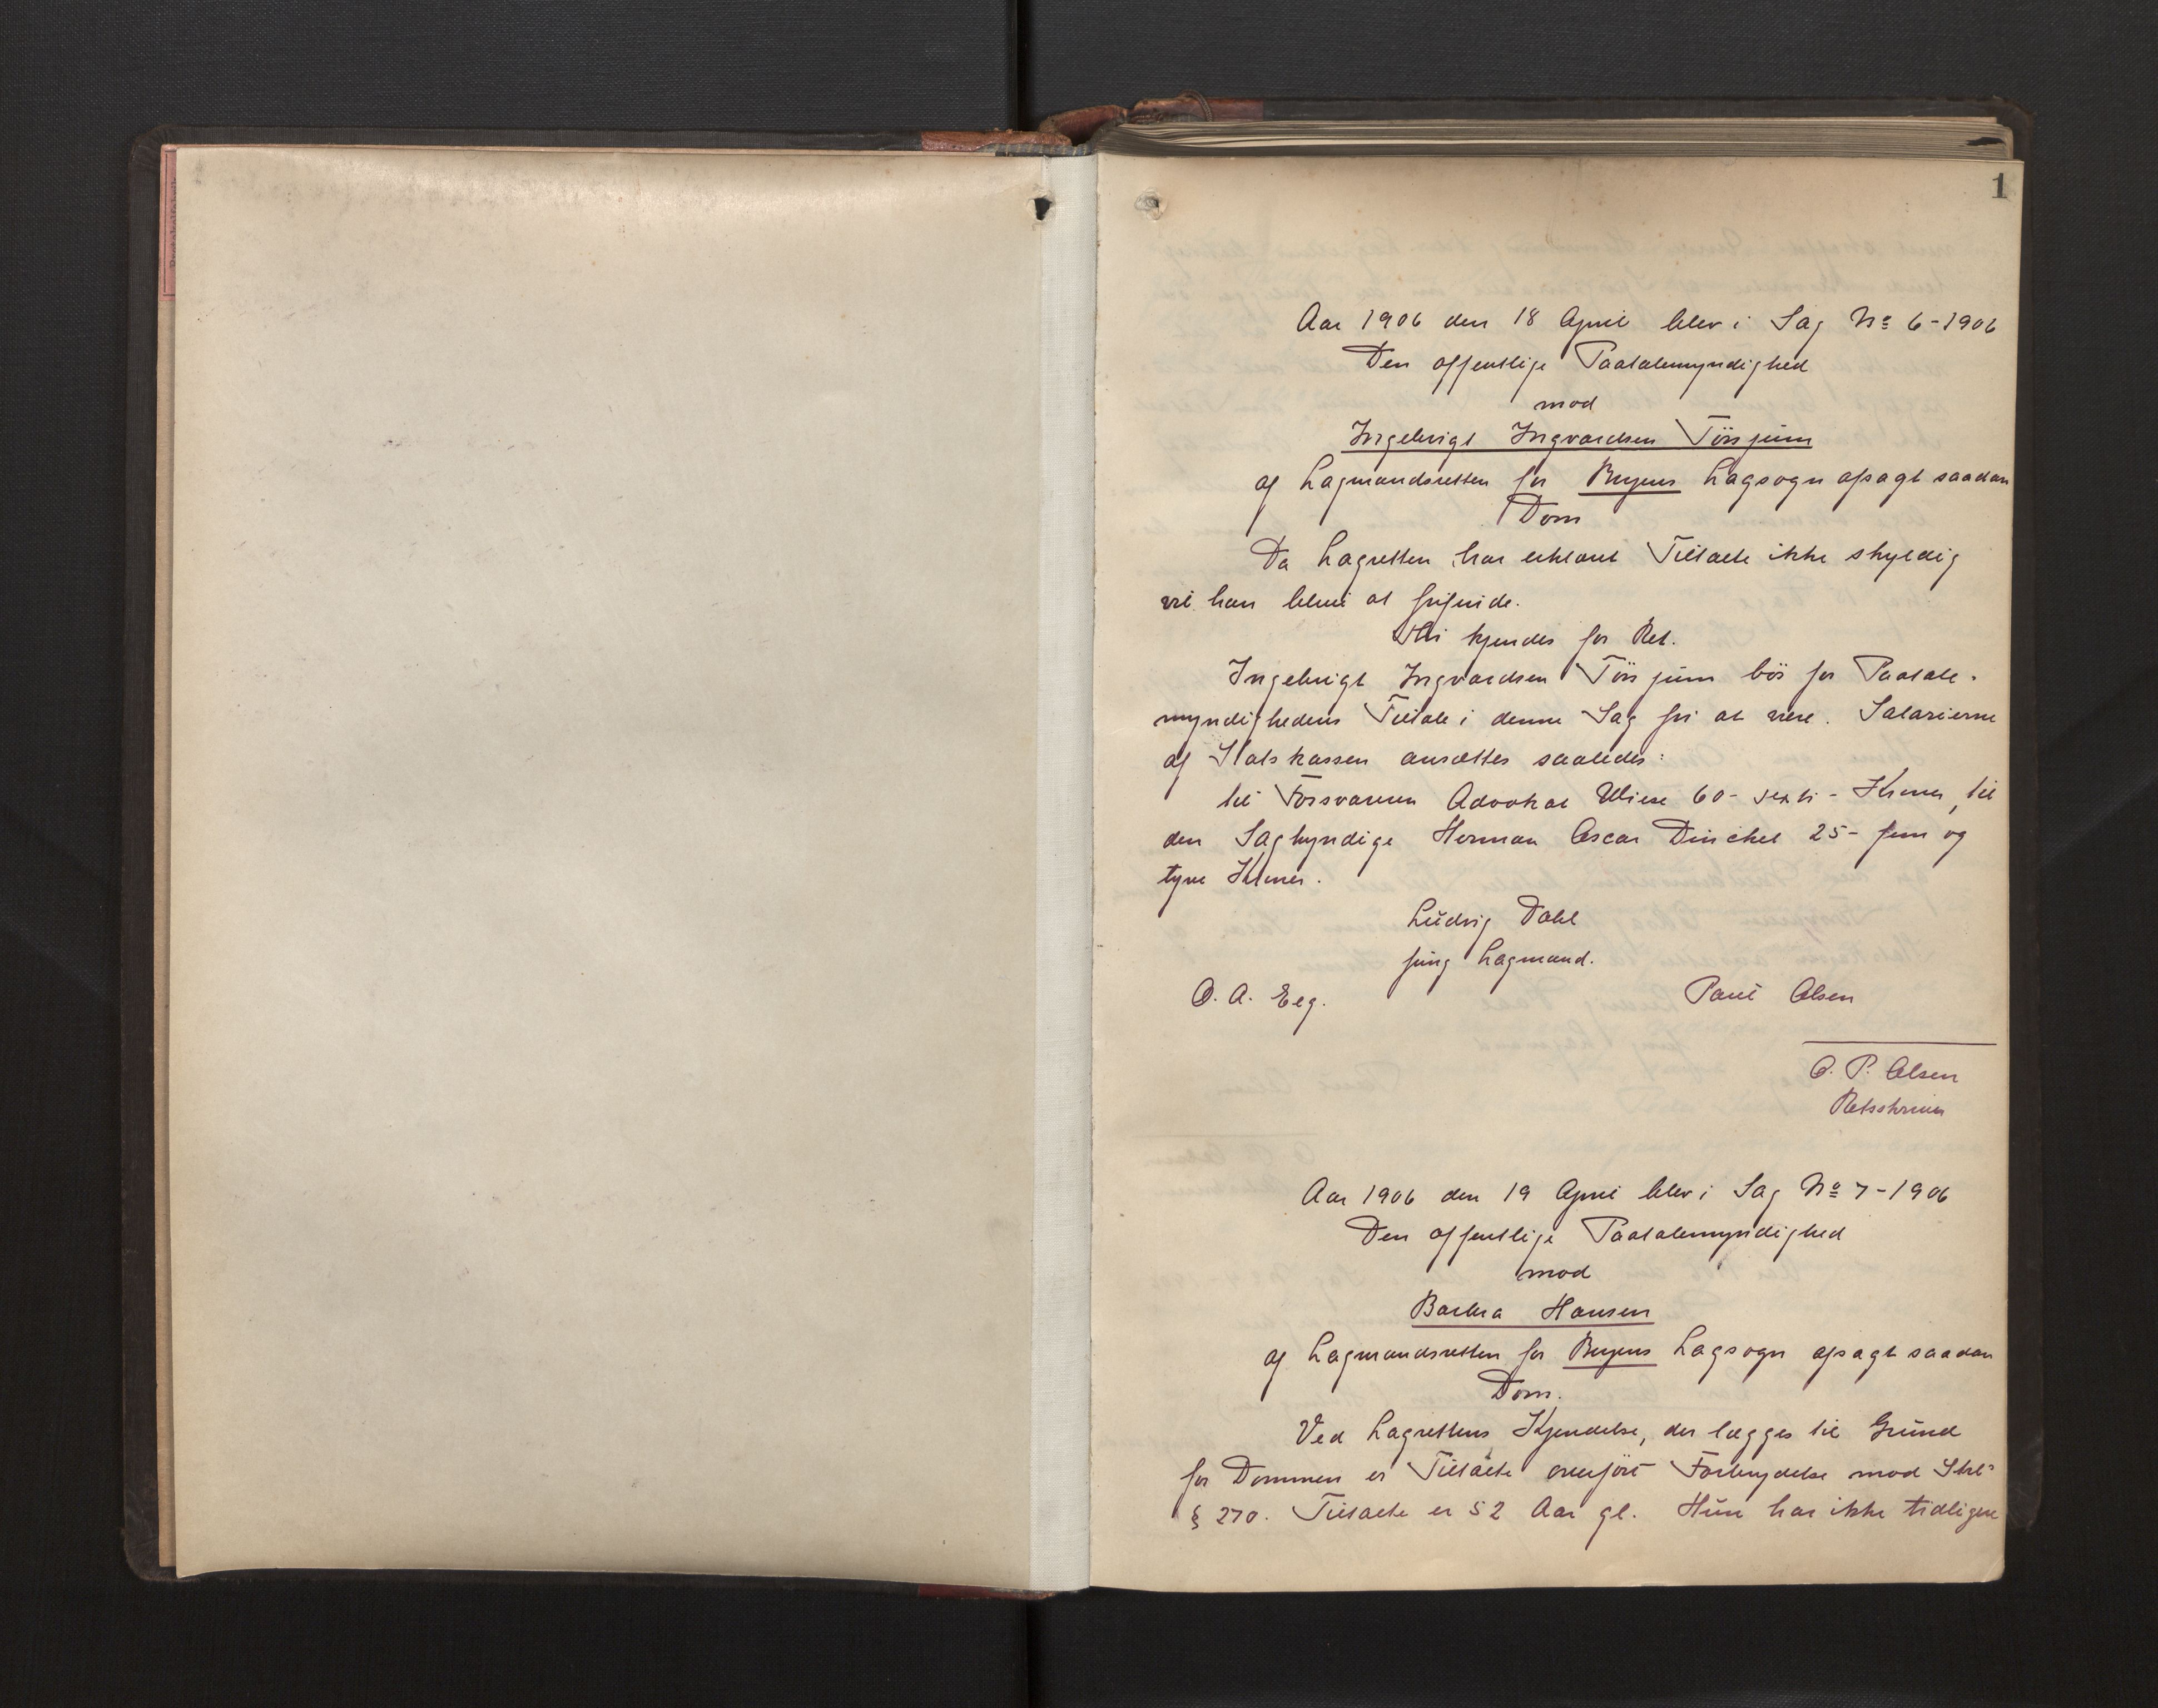 1
Aar 1906 den 18 April blev i Sag No 6-1906
Den offentlige Paatalemyndighed
mod
Ingebrigt Ingvardsen Tönjum
af Lagmandsretten for Bergens Lagsogn afsagt saadan
Dom
Da Lagretten har erklært Tiltalte ikke skyldig
vil han blive at frifinde.
Thi kjendes for Ret.
Ingebrigt Ingvardsen Tönjum bör for Paatale-
myndighedens Tiltale i denne Sag fri at være. Salarierne
af Statskassen ansættes saaledes:
til Forsvareren Advokat Wiese 60- sexti - Kroner, til
den Sagkyndige Herman Oscar Dinckel 25- fem og
tyve Kroner.
Ludvig Dahl
fung Lagmand.
O. A. Eeg. Paul Olsen
O. P. Olsen
Retsskriver
Aar 1906 den 19 April blev i Sag No 7-1906
Den offentlige Paatalemyndighed
mod
Barbra Hansen
af Lagmandsretten for Bergens Lagsogn afsagt saadan
Dom.
Ved Lagrettens Kjendelse, der lægges til Grund
for Dommen er Tiltalte overført Forbrydelse mod Strl's
§ 270. Tiltalte er 52 Aar gl. Hun har ikke tidligere